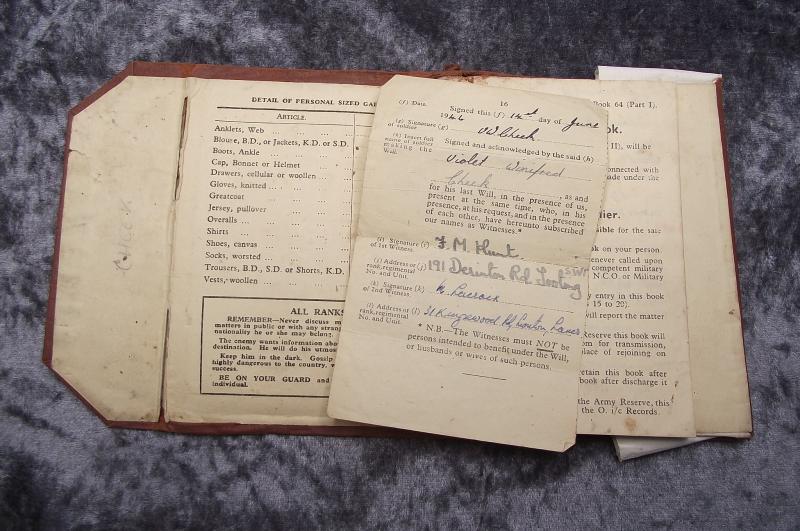 DETAIL OF PERSONAL SIZED
ARTICLE.
Anklets, Web
Blouse, B.D., or Jackets, K.D. or S.D.
Boots, Ankle
Cap, Bonnet or Helmet
Drawers, cellular or woollen
Gloves, knitted
Greatcoat
Jersey, pullover
Overalls
Shirts
Shoes, canvas
Socks, worsted
Trousers, B.D., S.D. or Shorts, K.D.
Vests, woollen
ALL RANKS
REMEMBER—Never discuss
matters in public or with any
nationality he or she may belong.
The enemy wants information
destination. He will do his utmost
Keep him in the dark. Gossip
highly dangerous to the country,
success.
BE ON YOUR GUARD and
individual.
16
(f) Date. Signed this (f) day of June
1944
(g) Signature (g) Cheek
of soldier
(h) Insert full Signed and acknowledged by the said (h)
name of soldier
making the
Will. Violet Winifred
Cheek, as and
for his last Will, in the presence of us,
present at the same time, who, in his
presence, at his request, and in the presence
of each other, have hereunto subscribed
our names as Witnesses.*
(i) Signature (i) F. M. Hunt.
of 1st Witness.
(j) Address or (j) 191 Derinton Rd Tooting SW17
rank, regimental
No. and Unit.
(k) Signature (k)
of 2nd Witness.
(l) Address or (l) 31 Kingswood Rd,
rank, regimental
No. and Unit.
* N.B.—The Witnesses must NOT be
persons intended to benefit under the Will,
or husbands or wives of such persons.
Book 64 (Part I).
ok.
II), will be
connected with
ade under the
ier.
ible for the saie
ok on your person.
enever called upon
competent military
N.C.O. or Military
y entry in this book
15 to 20).
will report the matter
Reserve this book will
om for transmission,
lace of rejoining on
etain this book after
after discharge it
the Army Reserve, this
the O. i/c Records.